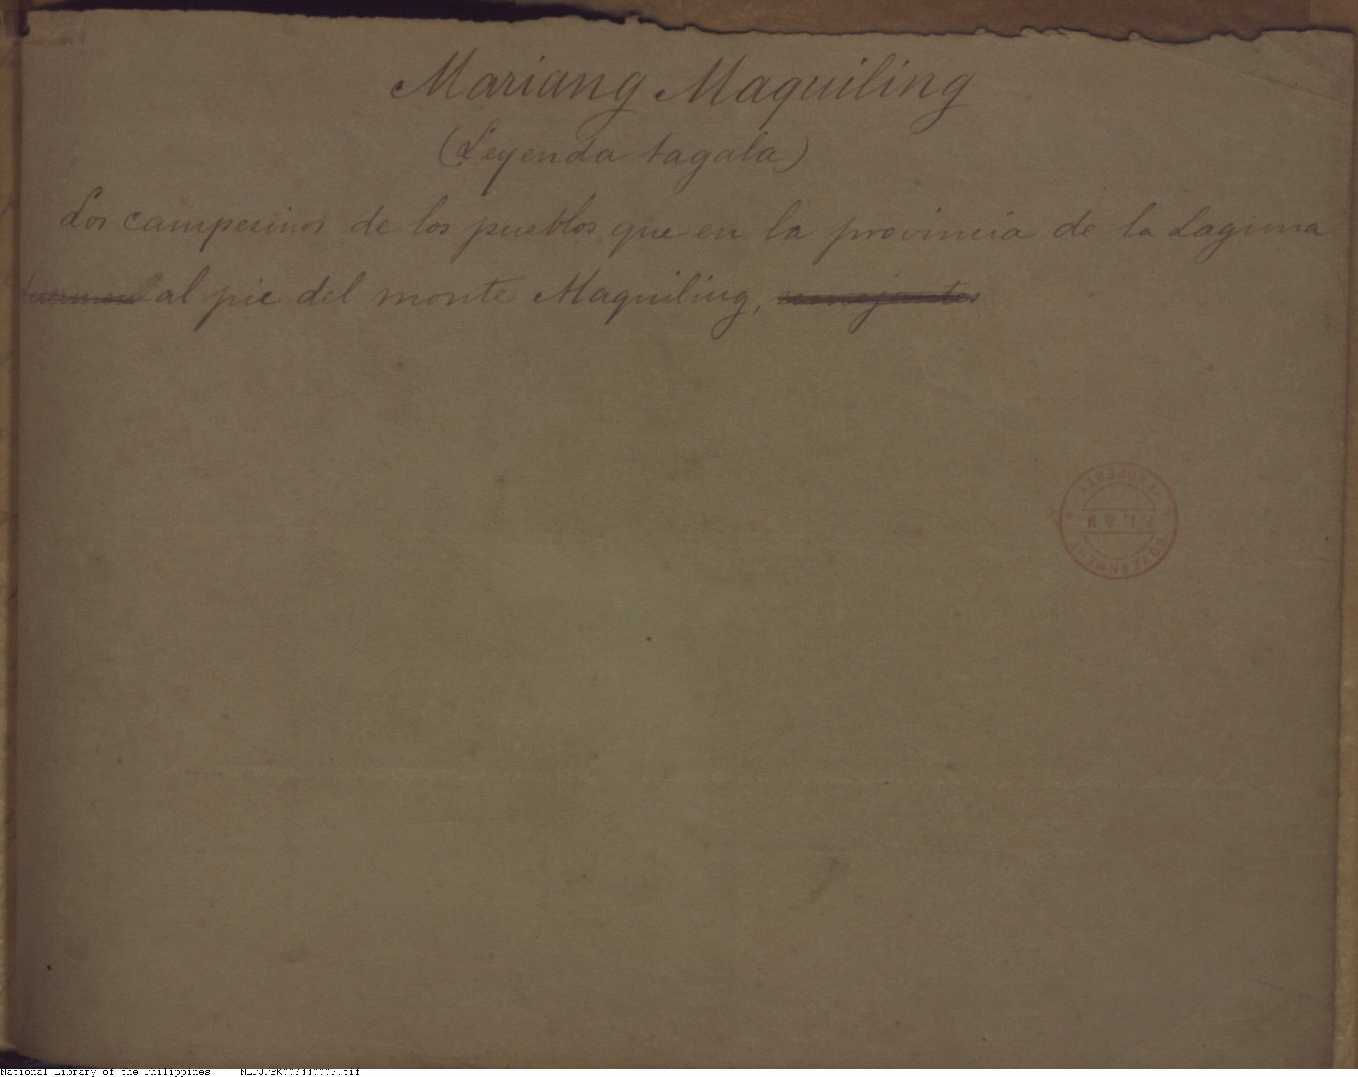 Mariang Maquiling
(Leyenda tagala)
Los campesinos de los pueblos que en la provincia de la Laguna
duermen al pie del monte Maquiling, semejantes
National Library of the Philippines